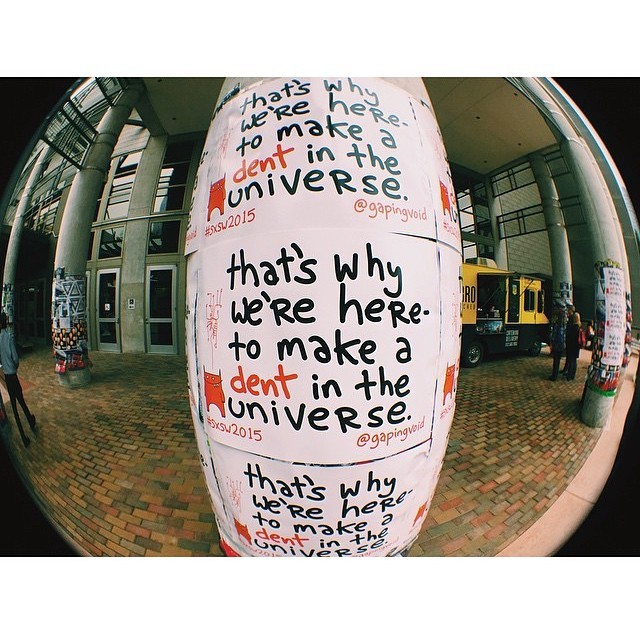 that's why
we're here-
to make a
dent in the
universe.
#sxsw2015
@gapingvoid
that's why
we're here-
to make a
dent in the
universe.
#sxsw2015
@gapingvoid
that's why
we're here-
to make a
dent in the
universe.